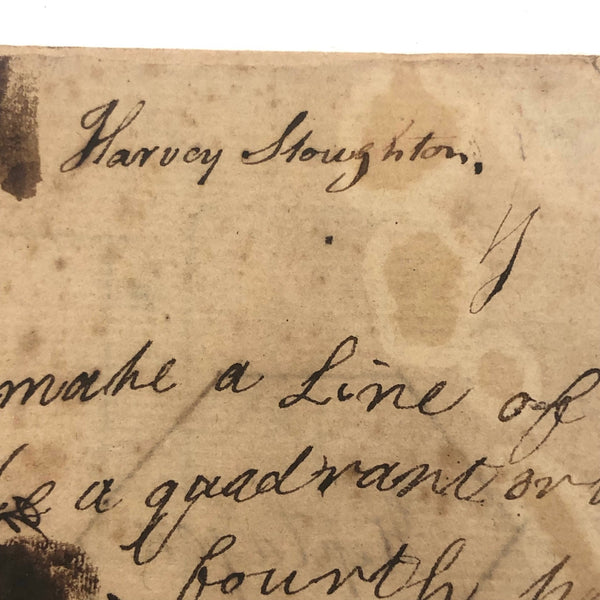 Harvey Stoughton.
y
make a Line of
a quadrant or
fourth